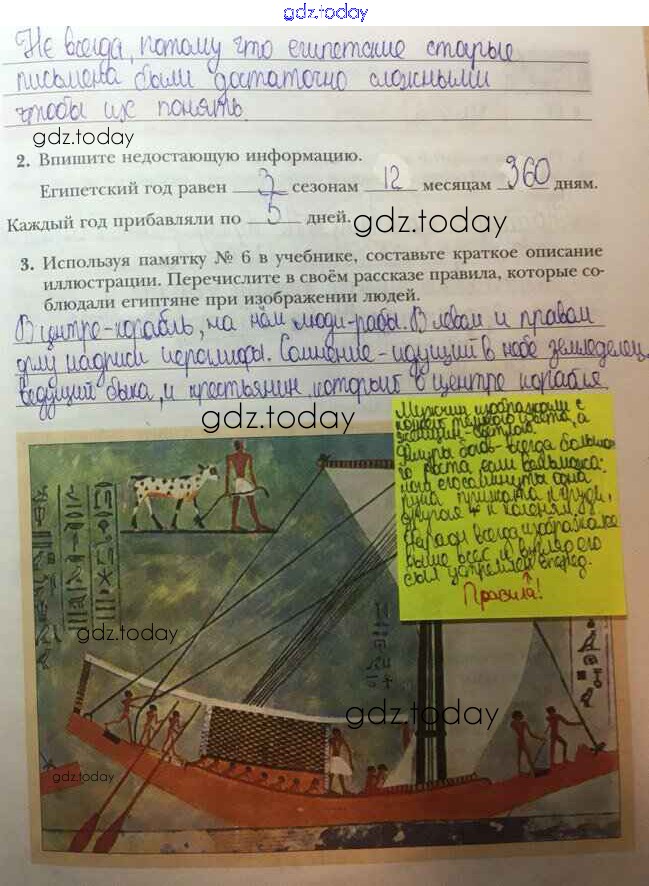 gdz.today
Не всегда, потому что египетские старые
письмена были достаточно сложными
чтобы их понять.
gdz.today
2. Впишите недостающую информацию.
Египетский год равен 3 сезонам 12 месяцам 360 дням.
Каждый год прибавляли по 5 дней.
gdz.today
3. Используя памятку № 6 в учебнике, составьте краткое описание
иллюстрации. Перечислите в своём рассказе правила, которые со-
блюдали египтяне при изображении людей.
В центре-корабль, на нём люди-рабы. В левом и правом
углу надписи иероглифы. Сомнение-идущий в небе земледелец,
ведущий быка, и крестьянин, который в центре корабля
gdz.today
Мужчин изображали с
кожей тёмного цвета, а
женщин-светлого.
Фигуры богов всегда большо-
го роста, если вельможа:
ноги сомкнуты одна
рука прижата к груди,
другая к коленям.
Фараон всегда изображался
выше всех и взгляд его
был устремлён вперёд.
Правила!
gdz.today
gdz.today
gdz.today